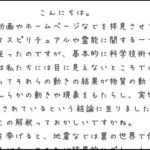 こんにちは。
動画やホームページなどを拝見させて
てスピリチュアルや霊能に関する一
至ったのですが、基本的に科学技術
は私たちには目に見えないところで
ってそれらの動きの結果が物質の動
らかの動きや現象をもたらし、実
されているという結論に至りました
この解釈っておかしいですかね。
を挙げると、地震などは裏の世界で